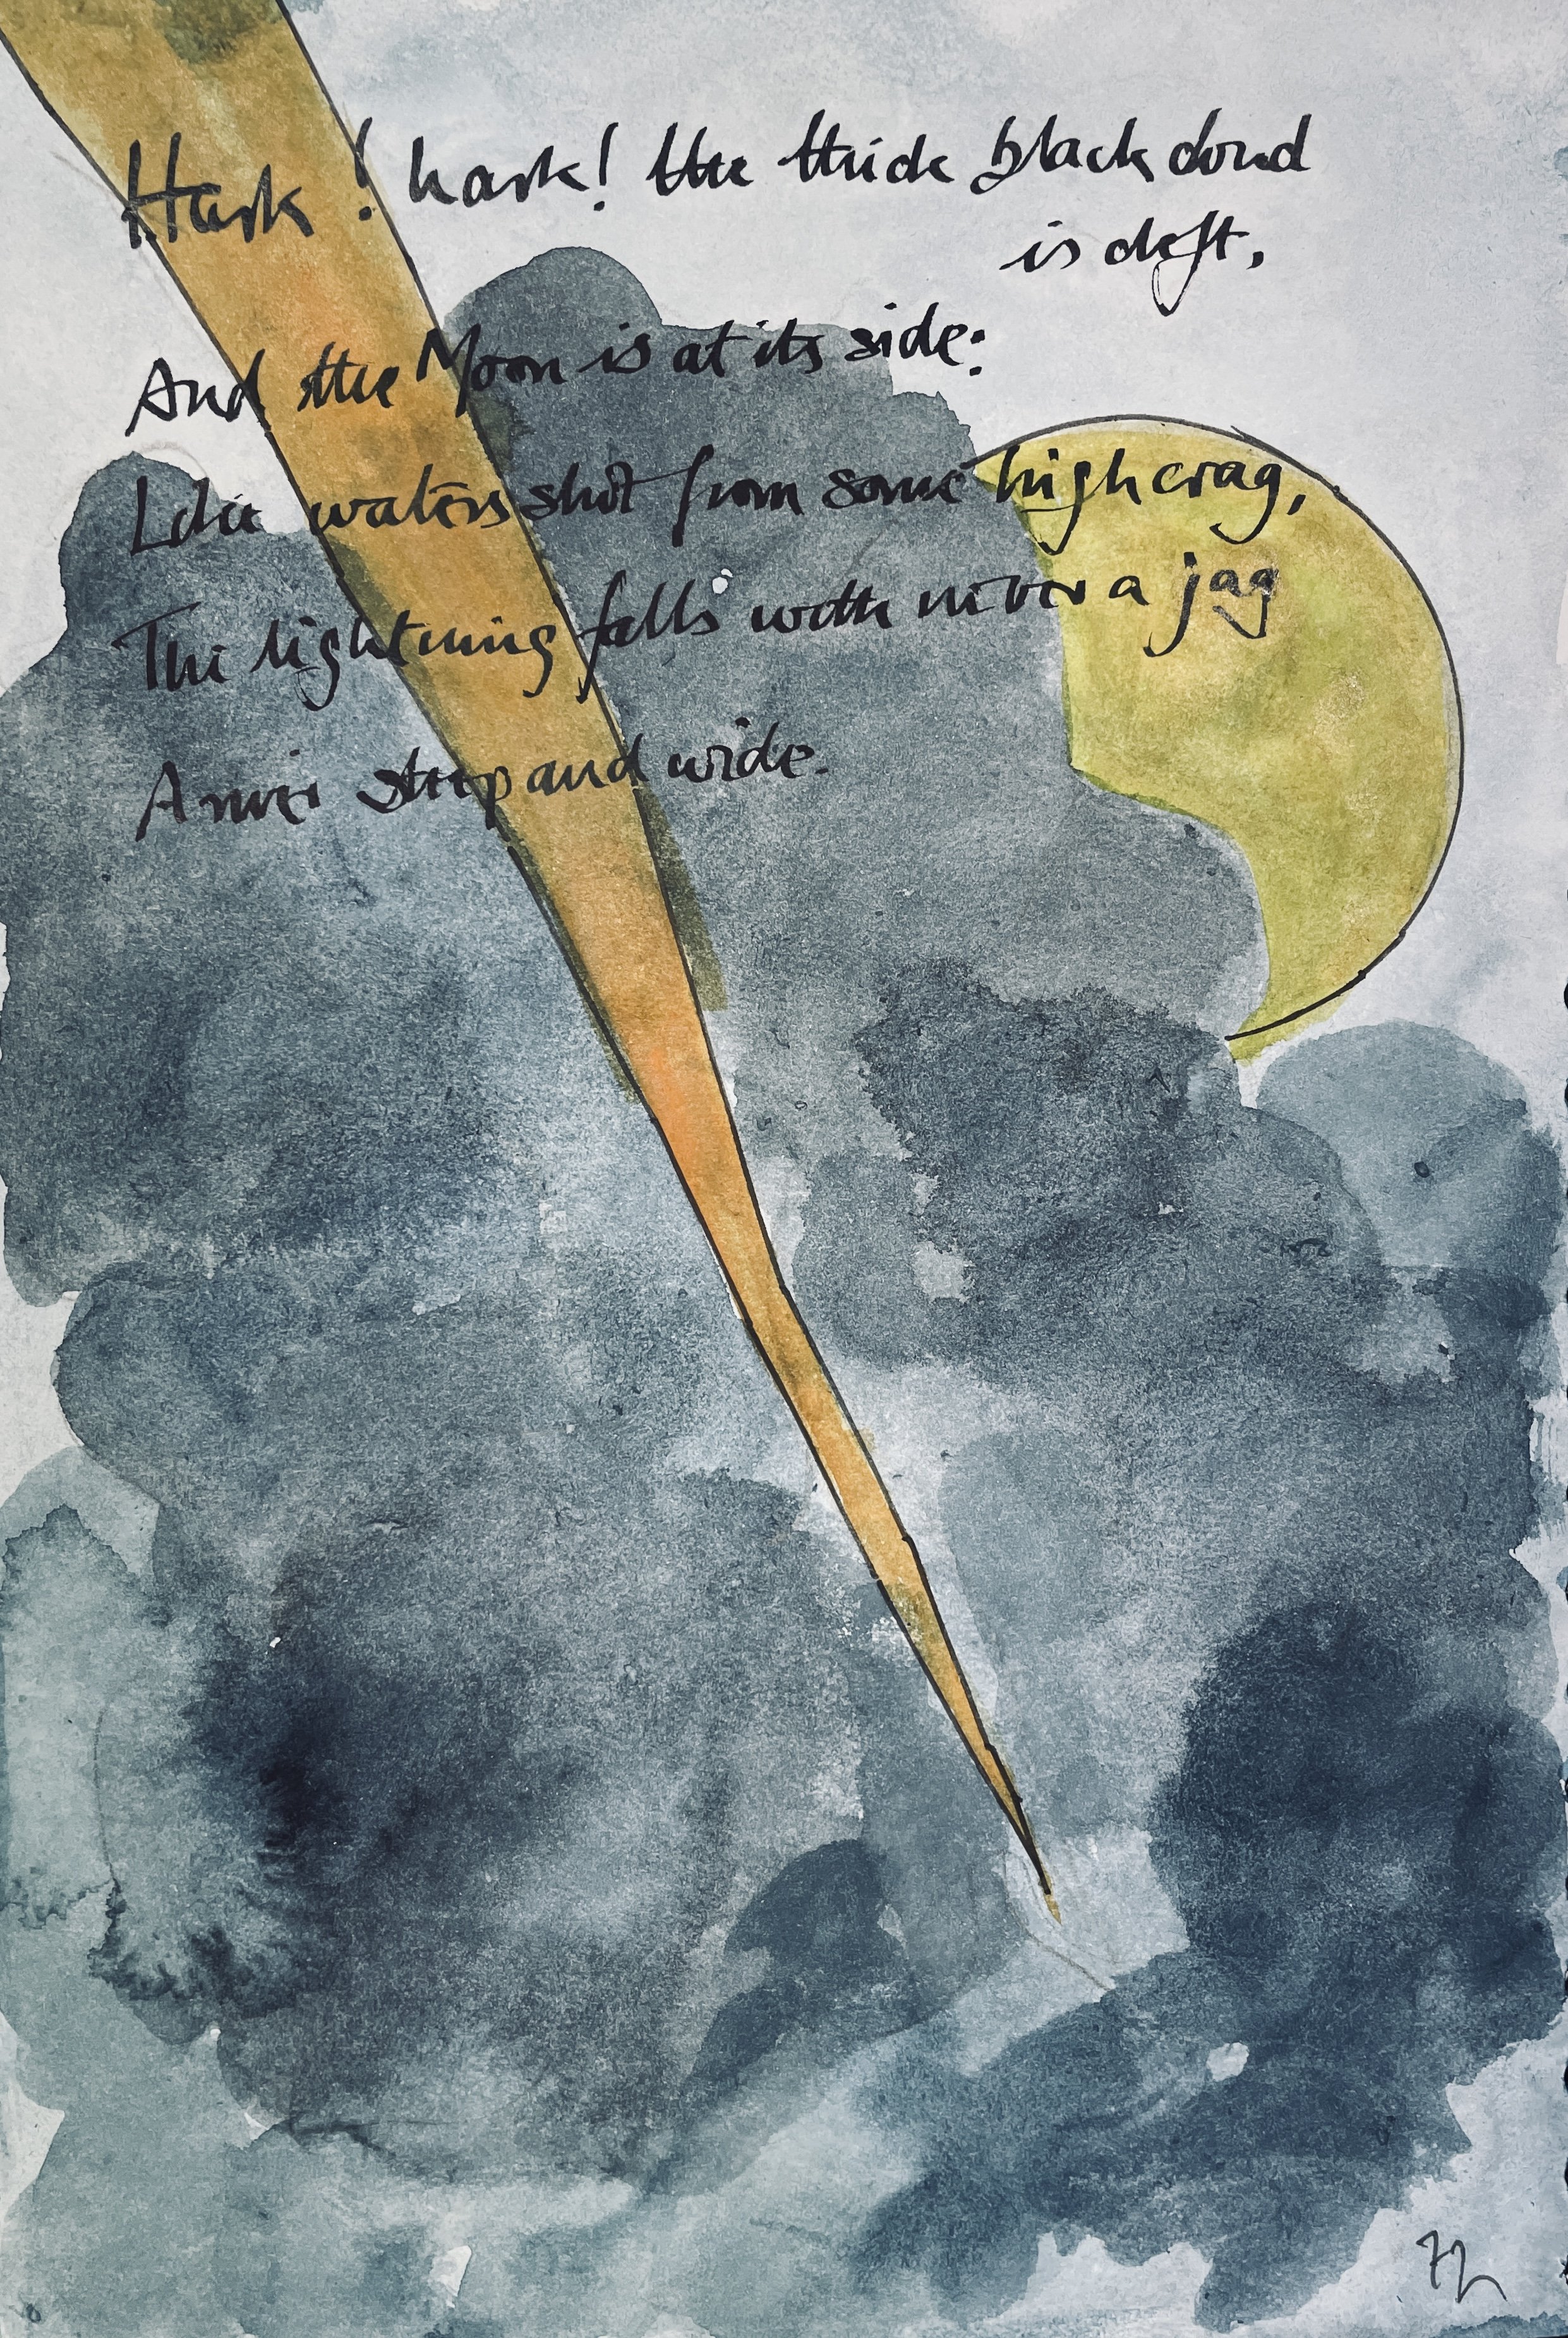 Hark! hark! the thick black cloud
is cleft,
And the Moon is at its side:
Like waters shot from some high crag,
The lightning falls with never a jag
A river steep and wide.
72